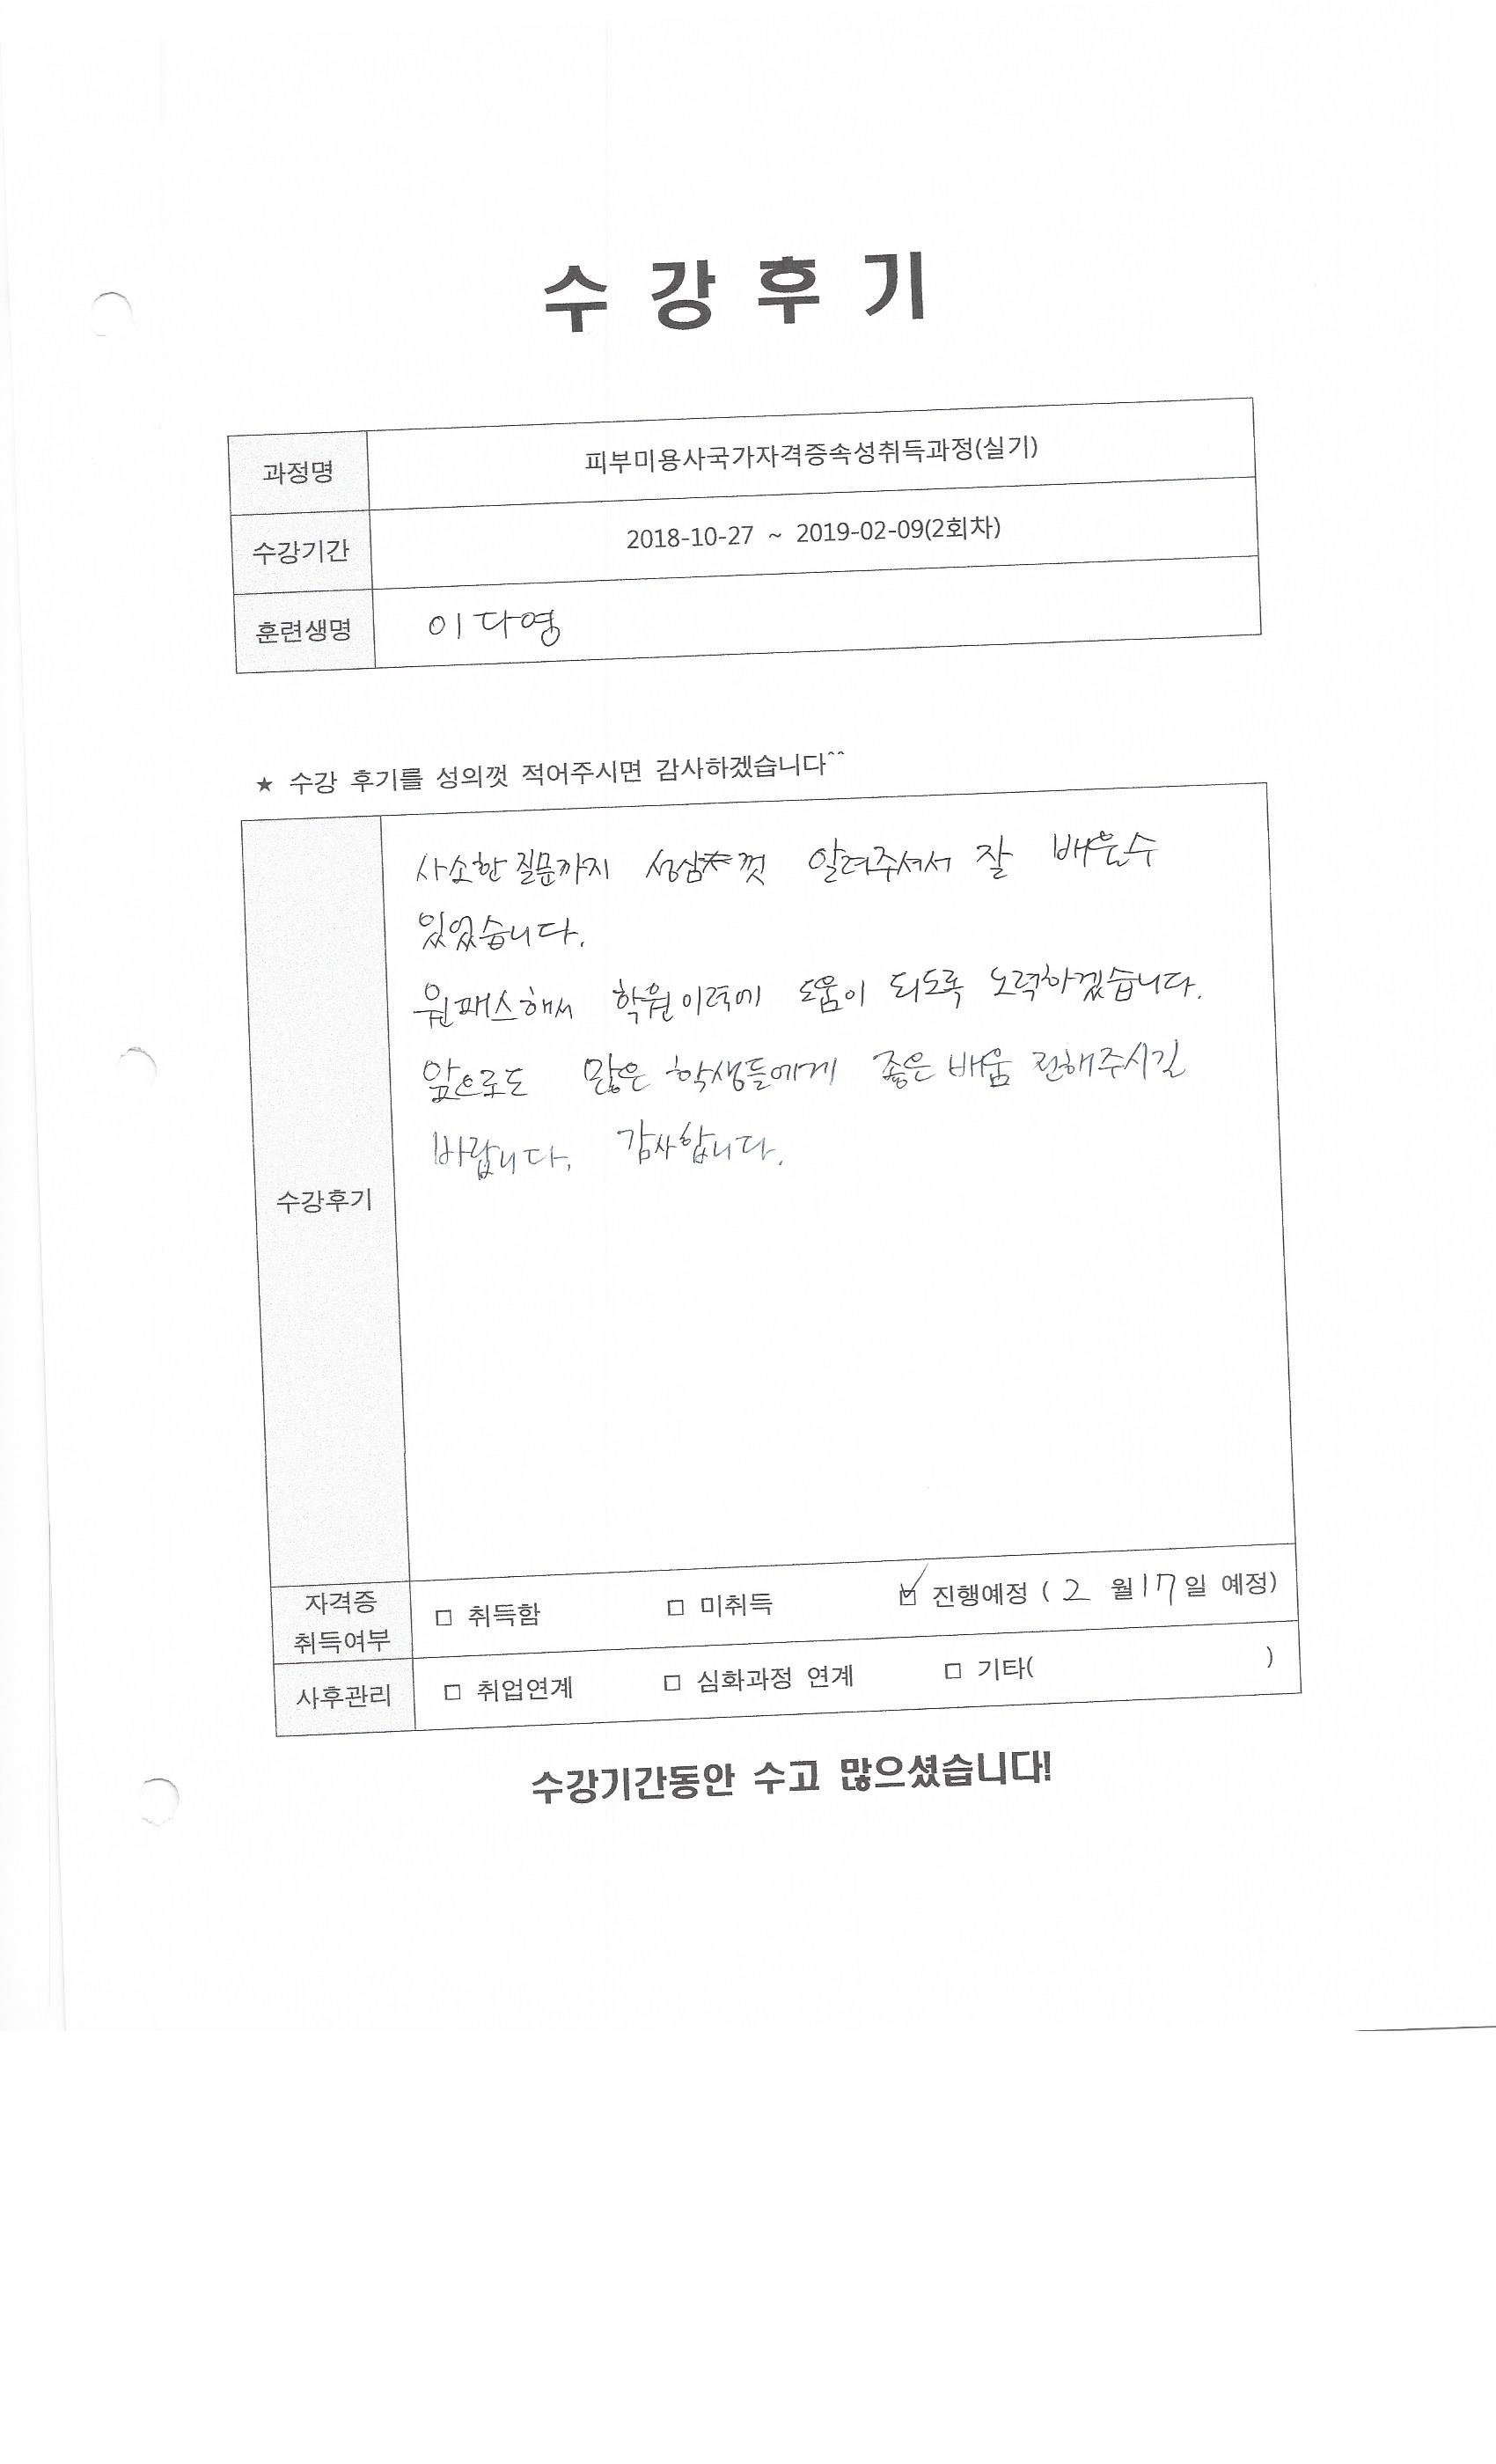 수 강 후 기
과정명 피부미용사국가자격증속성취득과정(실기)
수강기간 2018-10-27 ~ 2019-02-09(2회차)
훈련생명 이다영
★ 수강 후기를 성의껏 적어주시면 감사하겠습니다^^
사소한 질문까지 성심껏 알려주셔서 잘 배울수
있었습니다.
원패스해서 학원이력에 도움이 되도록 노력하겠습니다.
앞으로도 많은 학생들에게 좋은 배움 전해주시길
바랍니다. 감사합니다.
수강후기
자격증
취득여부
□ 취득함 □ 미취득 ☑ 진행예정 ( 2 월 17 일 예정)
사후관리 □ 취업연계 □ 심화과정 연계 □ 기타( )
수강기간동안 수고 많으셨습니다!